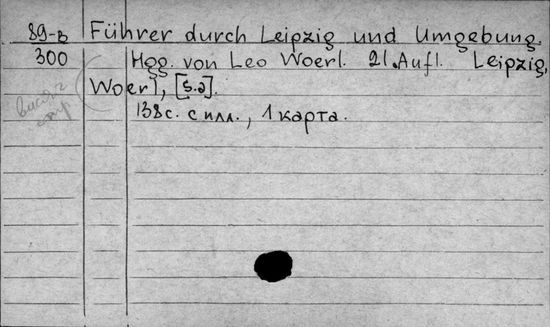 89-в Führer durch Leipzig und Umgebung.
300 Hgg. von Leo Woerl. 21. Aufl. Leipzig,
Woerl, [s.a].
138с. с илл., 1 карта.